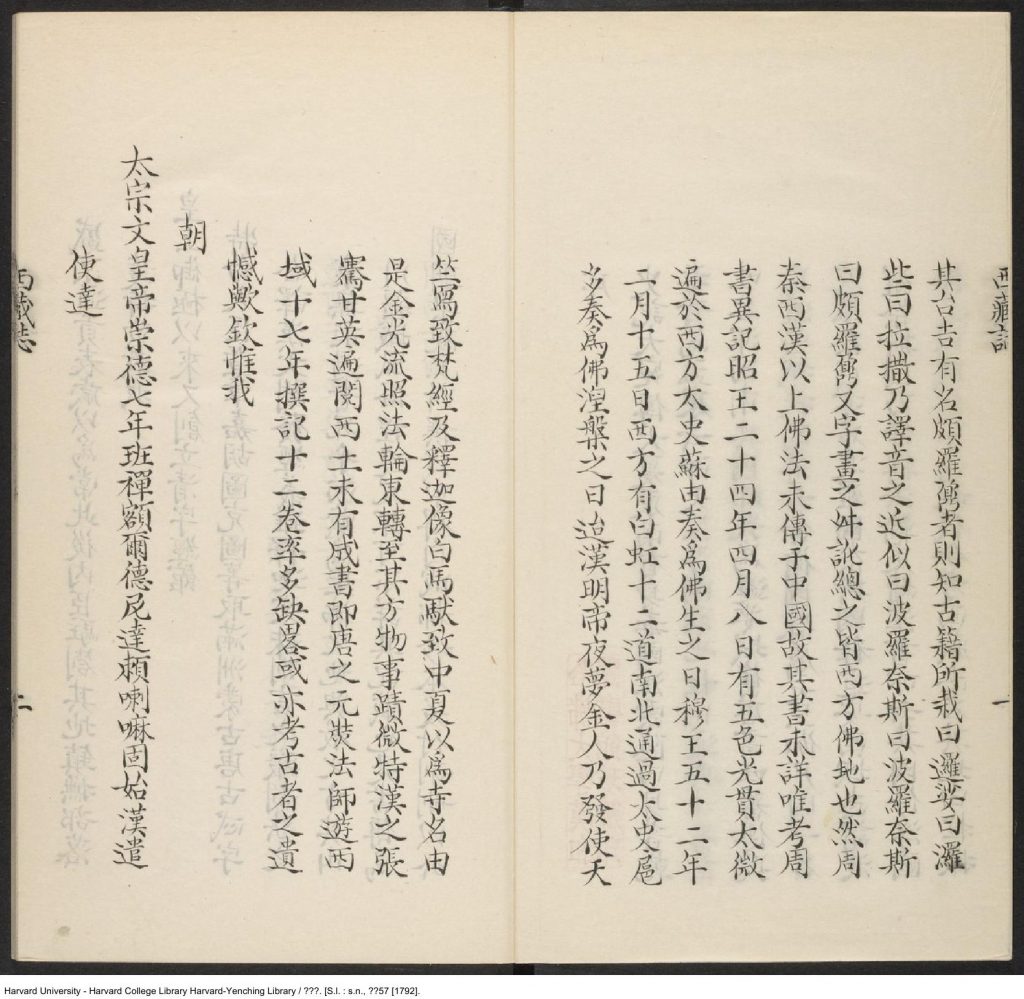 西藏記
其台吉有名頗羅鼐者則知古籍所載曰邏娑曰灑
些曰拉撒乃譯音之近似曰波羅奈斯曰波羅奈斯
曰頗羅鼐又字畫之舛訛總之皆西方佛地也然周
秦西漢以上佛法未傳于中國故其書未詳唯考周
書異記昭王二十四年四月八日有五色光貫太微
遍於西方太史蘇由奏爲佛生之日穆王五十二年
二月十五日西方有白虹十二道南北通過太史扈
多奏爲佛涅槃之日迨漢明帝夜夢金人乃發使天
一
竺寫致梵經及釋迦像白馬馱致中夏以爲寺名由
是金光流照法輪東轉至其方物事蹟微特漢之張
騫甘英遍閱西土未有成書即唐之元奘法師遊西
域十七年撰記十二卷率多缺畧或亦考古者之遺
憾歟欽惟我
朝
太宗文皇帝崇德七年班禪額爾德尼達賴喇嘛固始漢遣
使達
西藏志
二
Harvard University - Harvard College Library Harvard-Yenching Library / ???. [S.l. : s.n., ??57 [1792].